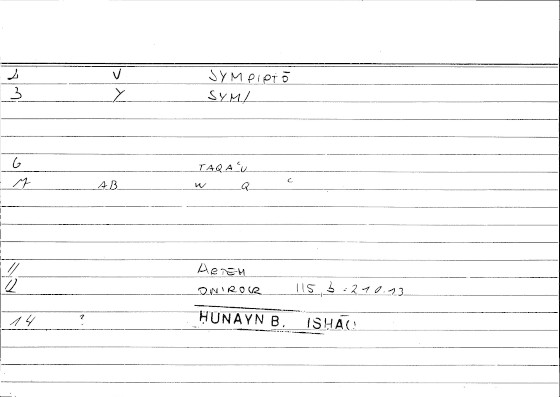 1 V SYMPIPTŌ
3 Y SYM/
6 TAQAʿU
M AB W Q ʿ
11 ARTEM
12 ONIROCR 115, 6 - 210.13
14 ? HUNAYN B. ISHĀQ